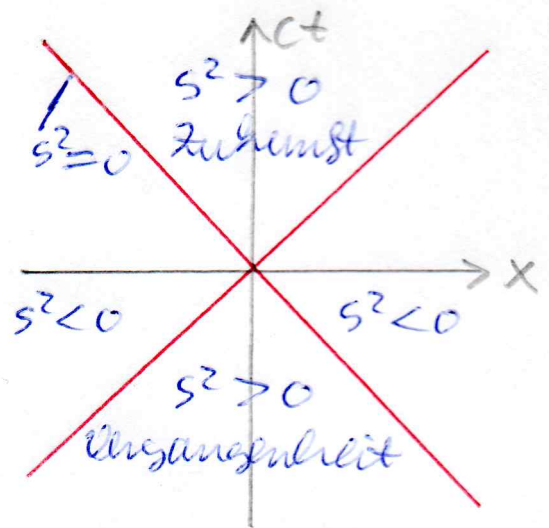 ct
s² > 0
Zukunft
s² = 0
x
s² < 0
s² < 0
s² > 0
Vergangenheit